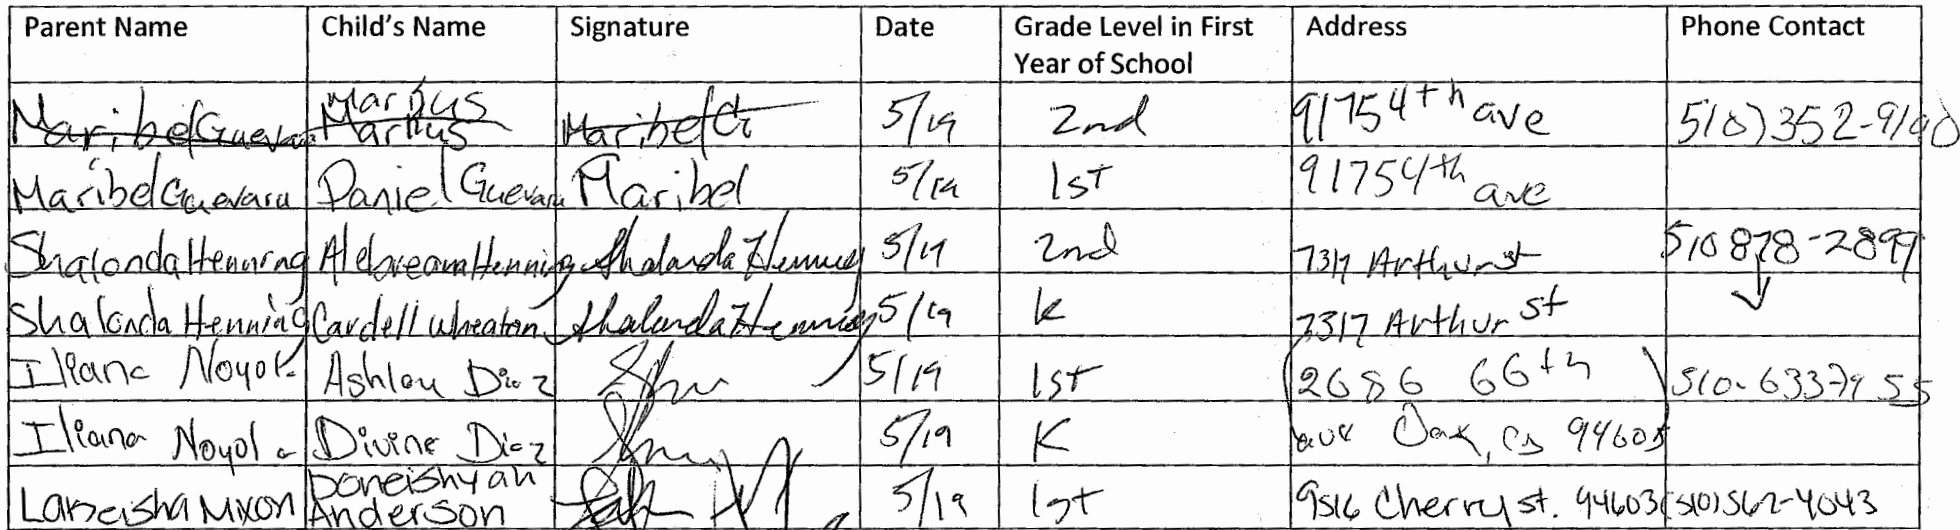 Parent Name Child's Name Signature Date Grade Level in First Year of School Address Phone Contact
Maribel Guevara Markus Markus Maribel G 5/19 2nd 9175 4th ave 510)352-9190
Maribel Guevara Daniel Guevara Maribel 5/19 1st 9175 4th ave
Shalonda Henning Henning Shalonda Henning 5/19 2nd 7317 Arthur st 510 878-2899
Shalonda Henning Cardell Wheaton Shalonda Henning 5/19 K 7317 Arthur st
Iliana Noyola Ashley Diaz 5/19 1st 2686 66th 510-6337955
Iliana Noyola Divine Diaz 5/19 K ave Oak, Ca 94605
Lakeisha Nixon Doneishyah Anderson 5/19 1st 9516 Cherry st. 94603 (510)562-4043